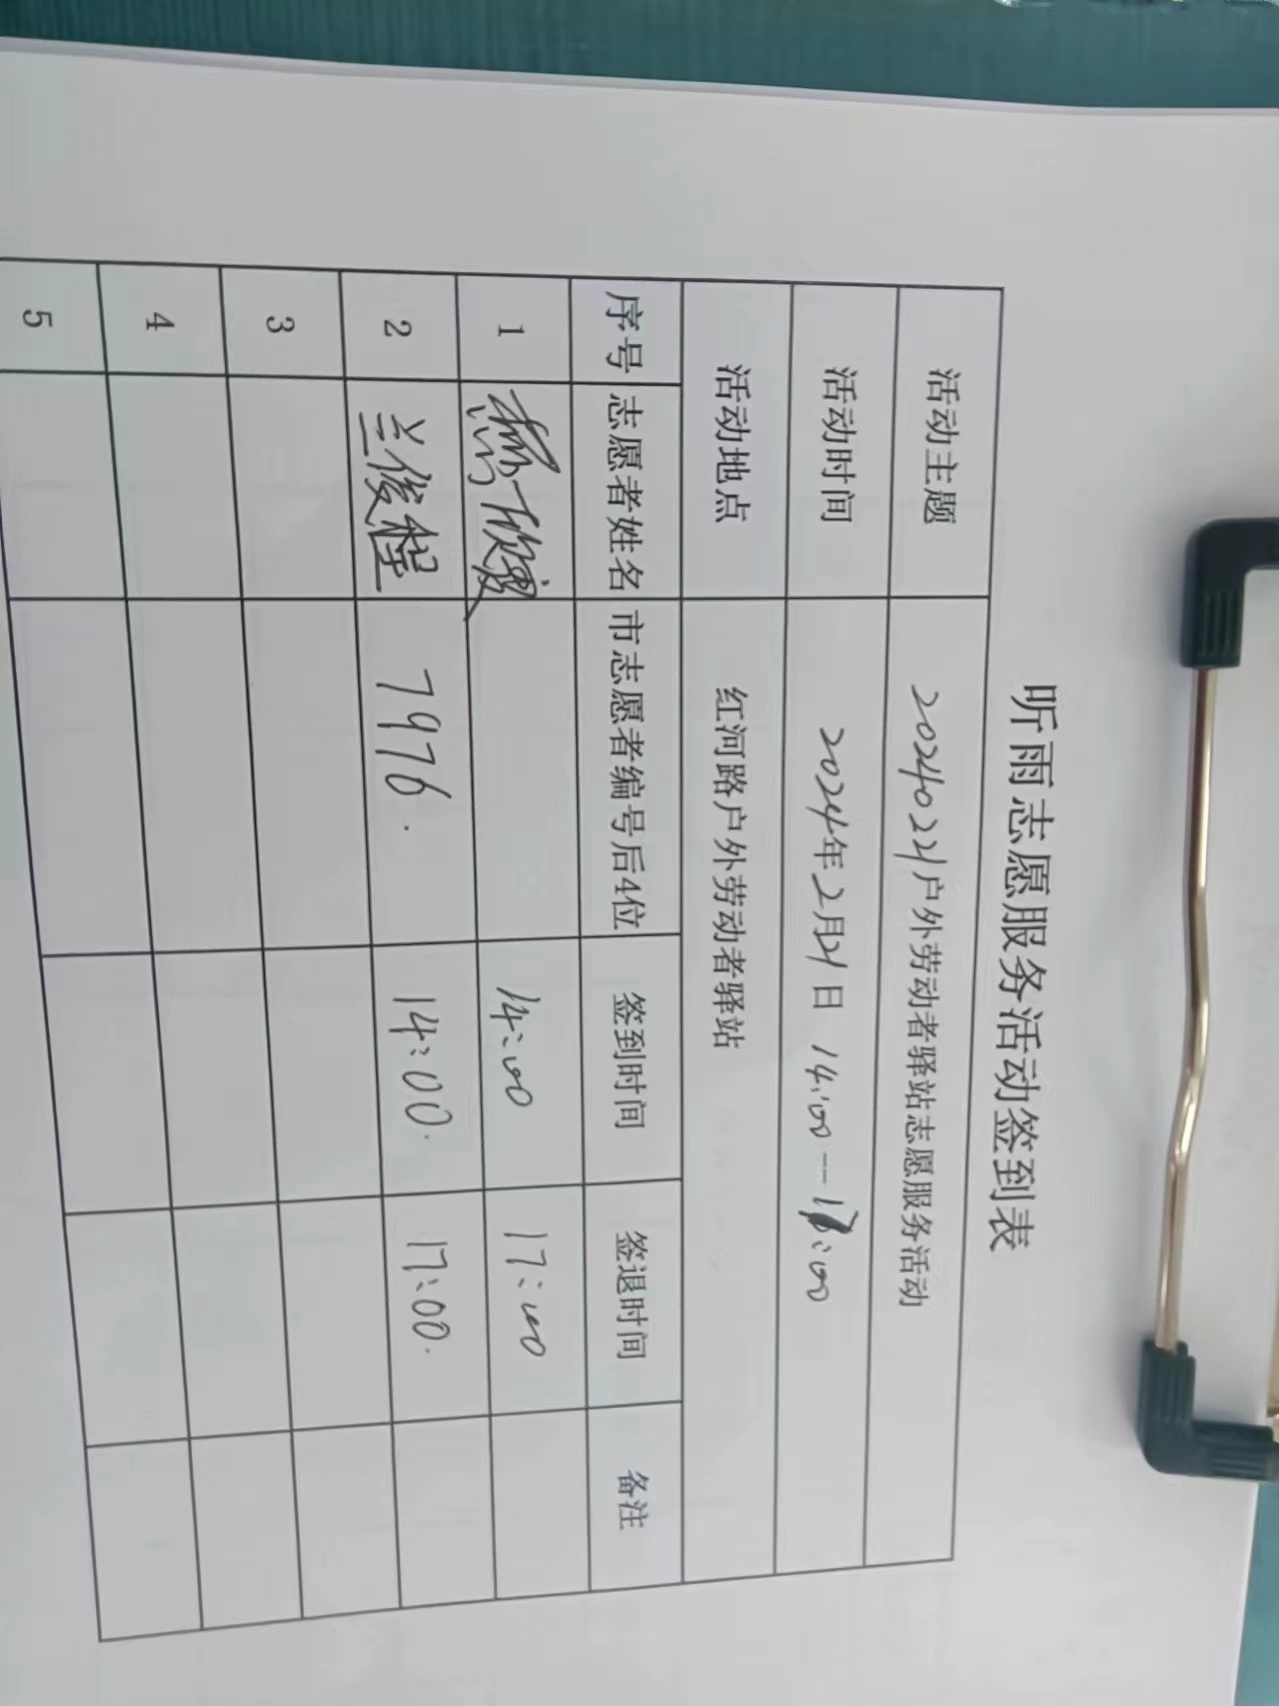 听雨志愿服务活动签到表
活动主题 20240221户外劳动者驿站志愿服务活动
活动时间 2024年2月21日 14:00—17:00
活动地点 红河路户外劳动者驿站
序号 志愿者姓名 市志愿者编号后4位 签到时间 签退时间 备注
1 14:00 17:00
2 兰俊程 7976. 14:00. 17:00.
3
4
5